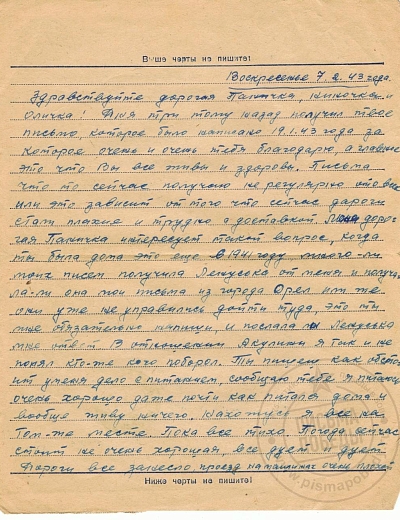 Выше черты не пишите!
Воскресенье 7.2.43 года.
Здравствуйте дорогая Паничка, Ниночка и
Оличка! Дня три тому назад получил твое
письмо, которое было написано 19.1.43 года за
которое очень и очень тебя благодарю, а главное
это что Вы все живы и здоровы. Письма
что то сейчас получаю не регулярно
или это зависит от того что сейчас дороги
стали плохие и трудно с доставкой. Меня доро-
гая Паничка интересует такой вопрос, когда
ты была дома это еще в 1941 году много-ли
моих писем получила Ленуська от меня и получа-
ла-ли она мои письма из города Орел или же
они уже не управились дойти туда, это ты
мне обязательно напиши, и послала ли Ленуська
мне ответ. В отношении Акулины я так и не
понял кто-же кого поборол. Ты пишешь как обсто-
ит у меня дело с питанием, сообщаю тебе я питаюсь
очень хорошо даже почти как питался дома и
вообще живу ничего. Нахожусь я все на
том-же месте. Пока все тихо. Погода сейчас
стоит не очень хорошая все дует и дует
Дороги все занесло, проезд на машинах очень плохой
Ниже черты не пишите!